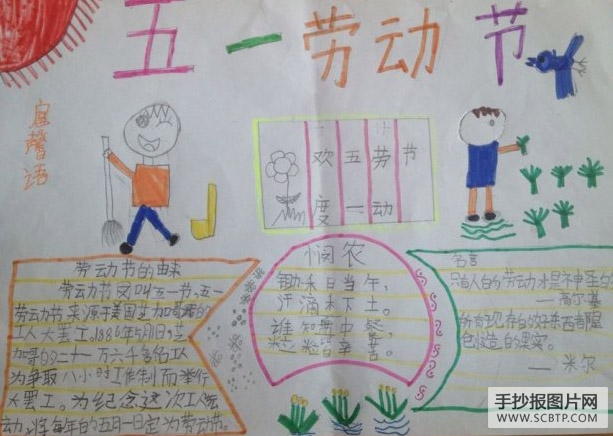 五一劳动节
宣馨语
欢五劳节
度一动
劳动节的由来
劳动节又叫五一节,五一
劳动节来源于美国芝加哥的
工人大罢工。1886年5月1日,芝
加哥的二十一万六千多名工人
为争取八小时工作制而举行
大罢工。为纪念这次工人运
动,将每年的五月一日定为劳动节。
悯农
锄禾日当午,
汗滴禾下土。
谁知盘中餐,
粒粒皆辛苦。
名言
只有人的劳动才是神圣的
——高尔基
所有现存的好东西都是
创造的果实。
——米尔
手抄报图片网
www.SCBTP.com